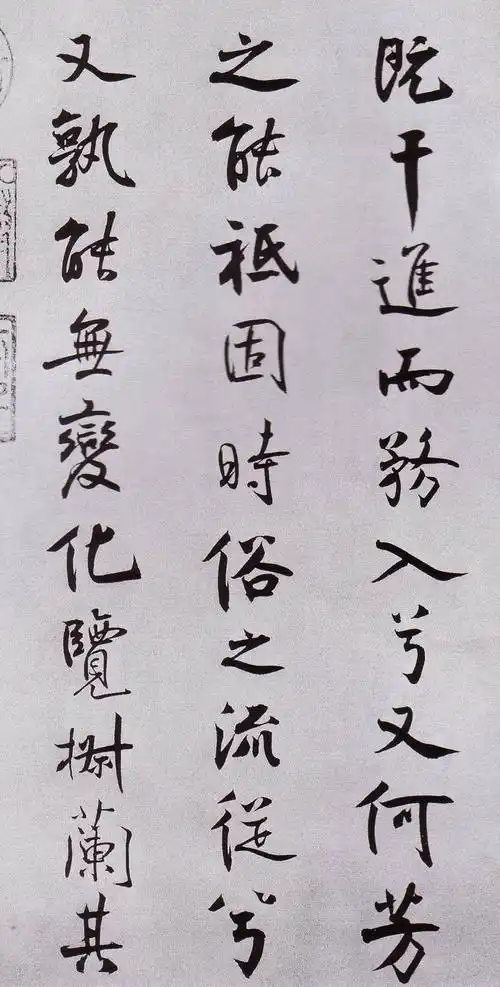 既干進而務入兮又何芳
之能祗固時俗之流從兮
又孰能無變化覽椒蘭其